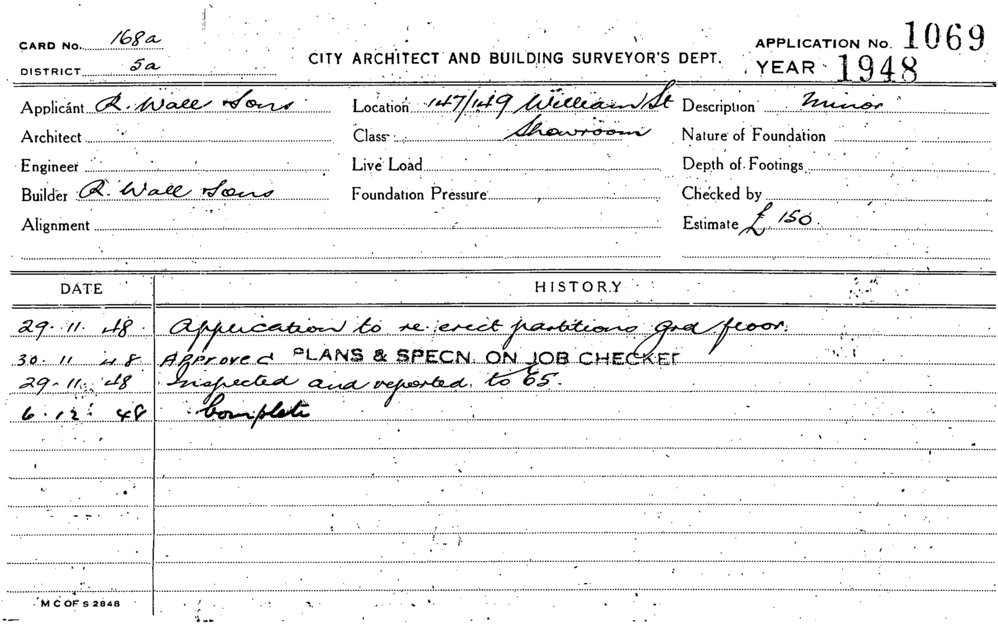 CARD No. 168a
DISTRICT 5a
CITY ARCHITECT AND BUILDING SURVEYOR'S DEPT.
APPLICATION No. 1069
YEAR 1948
Applicant R. Wall Sons Location 147/149 William St Description Minor
Architect Class Showroom Nature of Foundation
Engineer Live Load Depth of Footings
Builder R. Wall Sons Foundation Pressure Checked by
Alignment Estimate £ 150.
DATE HISTORY
29. 11. 48. Application to re erect partitions grd floor.
30. 11 48 Approved PLANS & SPECN. ON JOB CHECKED
29. 11. 48 Inspected and reported. to E5.
6. 12. 48 Complete
M C OF S 2848